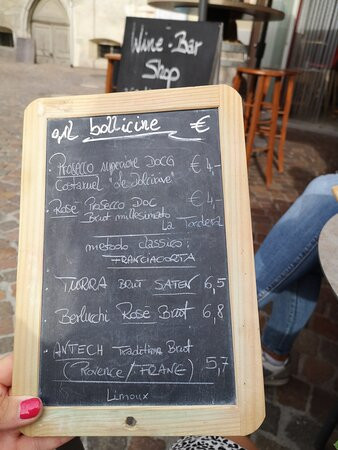 Wine-Bar
Shop
bollicine €
Prosecco superiore DOCG € 4,-
Costaruel "Le Dolci
Rosè Prosecco DOC € 4,-
Brut millesimato
La Tordera
metodo classico:
FRANCIACORTA
TURRA BRUT SATEN 6,5
Berlucchi Rosè Brut 6,8
ANTECH Tradition Brut
(Provence/FRANCE) 5,7
Limoux